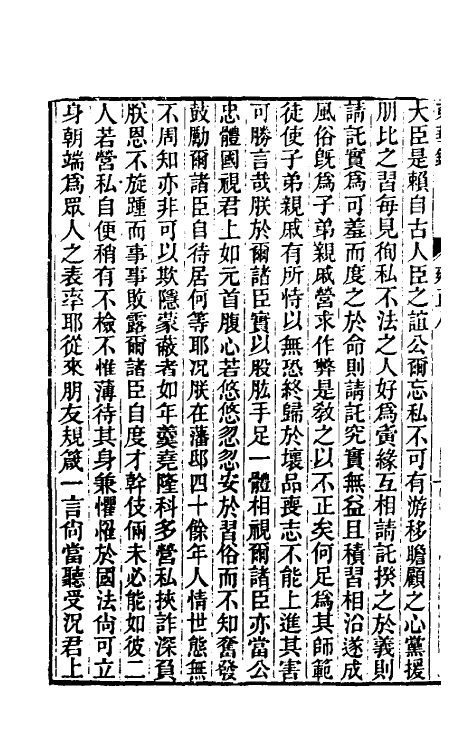 大臣是賴自古人臣之誼公爾忘私不可有游移瞻顧之心黨援
朋比之習每見徇私不法之人好爲夤緣互相請託揆之於義則
請託實爲可羞而度之於命則請託究實無益且積習相沿遂成
風俗旣爲子弟親戚營求作弊是敎之以不正矣何足爲其師範
徒使子弟親戚有所恃以無恐終歸於壞品喪志不能上進其害
可勝言哉朕於爾諸臣實以股肱手足一體相視爾諸臣亦當公
忠體國視君上如元首腹心若悠悠忽忽安於習俗而不知奮發
鼓勵爾諸臣自待居何等耶况朕在藩邸四十餘年人情世態無
不周知亦非可以欺隱蒙蔽者如年羹堯隆科多營私挾詐深負
朕恩不旋踵而事事敗露爾諸臣自度才幹伎倆未必能如彼二
人若營私自便稍有不檢不惟薄待其身兼懼罹於國法尙可立
身朝端爲眾人之表率耶從來朋友規箴一言尙當聽受况君上